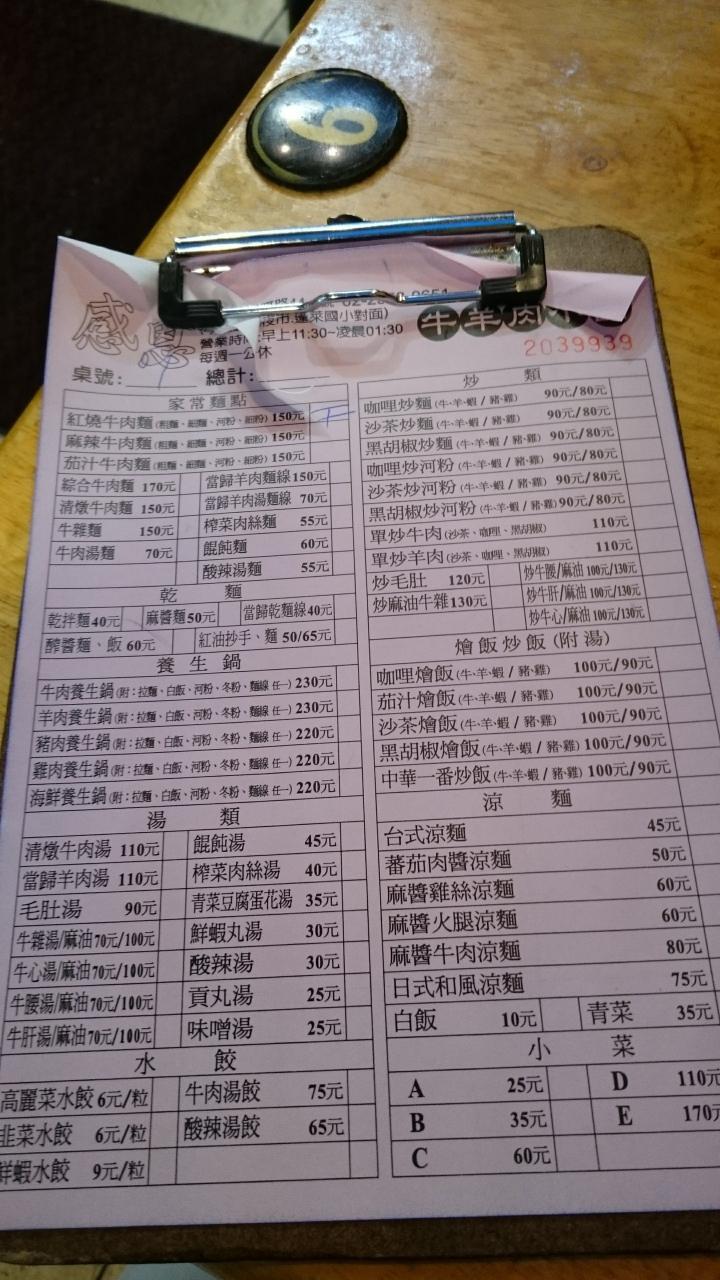 6
感恩
牛羊肉
蓬萊國小對面)
營業時間:早上11:30~凌晨01:30
每週一公休
2039939
桌號: 總計:
家常麵點
紅燒牛肉麵(粗麵、細麵、河粉、細粉) 150元
麻辣牛肉麵(粗麵、細麵、河粉、細粉) 150元
茄汁牛肉麵(粗麵、細麵、河粉、細粉) 150元
綜合牛肉麵 170元 當歸羊肉麵線 150元
清燉牛肉麵 150元 當歸羊肉湯麵線 70元
牛雜麵 150元 榨菜肉絲麵 55元
牛肉湯麵 70元 餛飩麵 60元
酸辣湯麵 55元
乾 麵
乾拌麵 40元 麻醬麵 50元 當歸乾麵線 40元
醡醬麵、飯 60元 紅油抄手、麵 50/65元
養生鍋
牛肉養生鍋(附:拉麵、白飯、河粉、冬粉、麵線 任一) 230元
羊肉養生鍋(附:拉麵、白飯、河粉、冬粉、麵線 任一) 230元
豬肉養生鍋(附:拉麵、白飯、河粉、冬粉、麵線 任一) 220元
雞肉養生鍋(附:拉麵、白飯、河粉、冬粉、麵線 任一) 220元
海鮮養生鍋(附:拉麵、白飯、河粉、冬粉、麵線 任一) 220元
湯 類
清燉牛肉湯 110元 餛飩湯 45元
當歸羊肉湯 110元 榨菜肉絲湯 40元
毛肚湯 90元 青菜豆腐蛋花湯 35元
牛雜湯/麻油 70元/100元 鮮蝦丸湯 30元
牛心湯/麻油 70元/100元 酸辣湯 30元
牛腰湯/麻油 70元/100元 貢丸湯 25元
牛肝湯/麻油 70元/100元 味噌湯 25元
水 餃
高麗菜水餃 6元/粒 牛肉湯餃 75元
韭菜水餃 6元/粒 酸辣湯餃 65元
鮮蝦水餃 9元/粒
炒 類
咖哩炒麵(牛、羊、蝦 / 豬、雞) 90元/80元
沙茶炒麵(牛、羊、蝦 / 豬、雞) 90元/80元
黑胡椒炒麵(牛、羊、蝦 / 豬、雞) 90元/80元
咖哩炒河粉(牛、羊、蝦 / 豬、雞) 90元/80元
沙茶炒河粉(牛、羊、蝦 / 豬、雞) 90元/80元
黑胡椒炒河粉(牛、羊、蝦 / 豬、雞) 90元/80元
單炒牛肉(沙茶、咖哩、黑胡椒) 110元
單炒羊肉(沙茶、咖哩、黑胡椒) 110元
炒毛肚 120元 炒牛腰/麻油 100元/130元
炒麻油牛雜 130元 炒牛肝/麻油 100元/130元
炒牛心/麻油 100元/130元
燴飯炒飯(附湯)
咖哩燴飯(牛、羊、蝦 / 豬、雞) 100元/90元
茄汁燴飯(牛、羊、蝦 / 豬、雞) 100元/90元
沙茶燴飯(牛、羊、蝦 / 豬、雞) 100元/90元
黑胡椒燴飯(牛、羊、蝦 / 豬、雞) 100元/90元
中華一番炒飯(牛、羊、蝦 / 豬、雞) 100元/90元
涼 麵
台式涼麵 45元
蕃茄肉醬涼麵 50元
麻醬雞絲涼麵 60元
麻醬火腿涼麵 60元
麻醬牛肉涼麵 80元
日式和風涼麵 75元
白飯 10元 青菜 35元
小 菜
A 25元 D 110元
B 35元 E 170元
C 60元